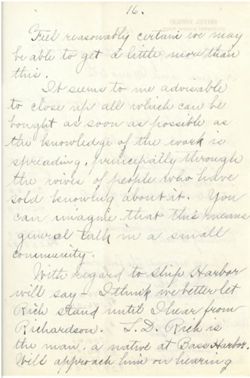 16.
Feel reasonably certain we may
be able to get a little more than
this.
It seems to me advisable
to close up all which can be
bought as soon as possible as
the knowledge of the work is
spreading, principally through
the wives of people who have
sold knowing about it. You
can imagine that this means
general talk in a small
community.
With regard to Ship Harbor
will say - I think we better let
Rich stand until I hear from
Richardson. S. D. Rich is
the man, a native at Bass Harbor.
Will approach him on hearing